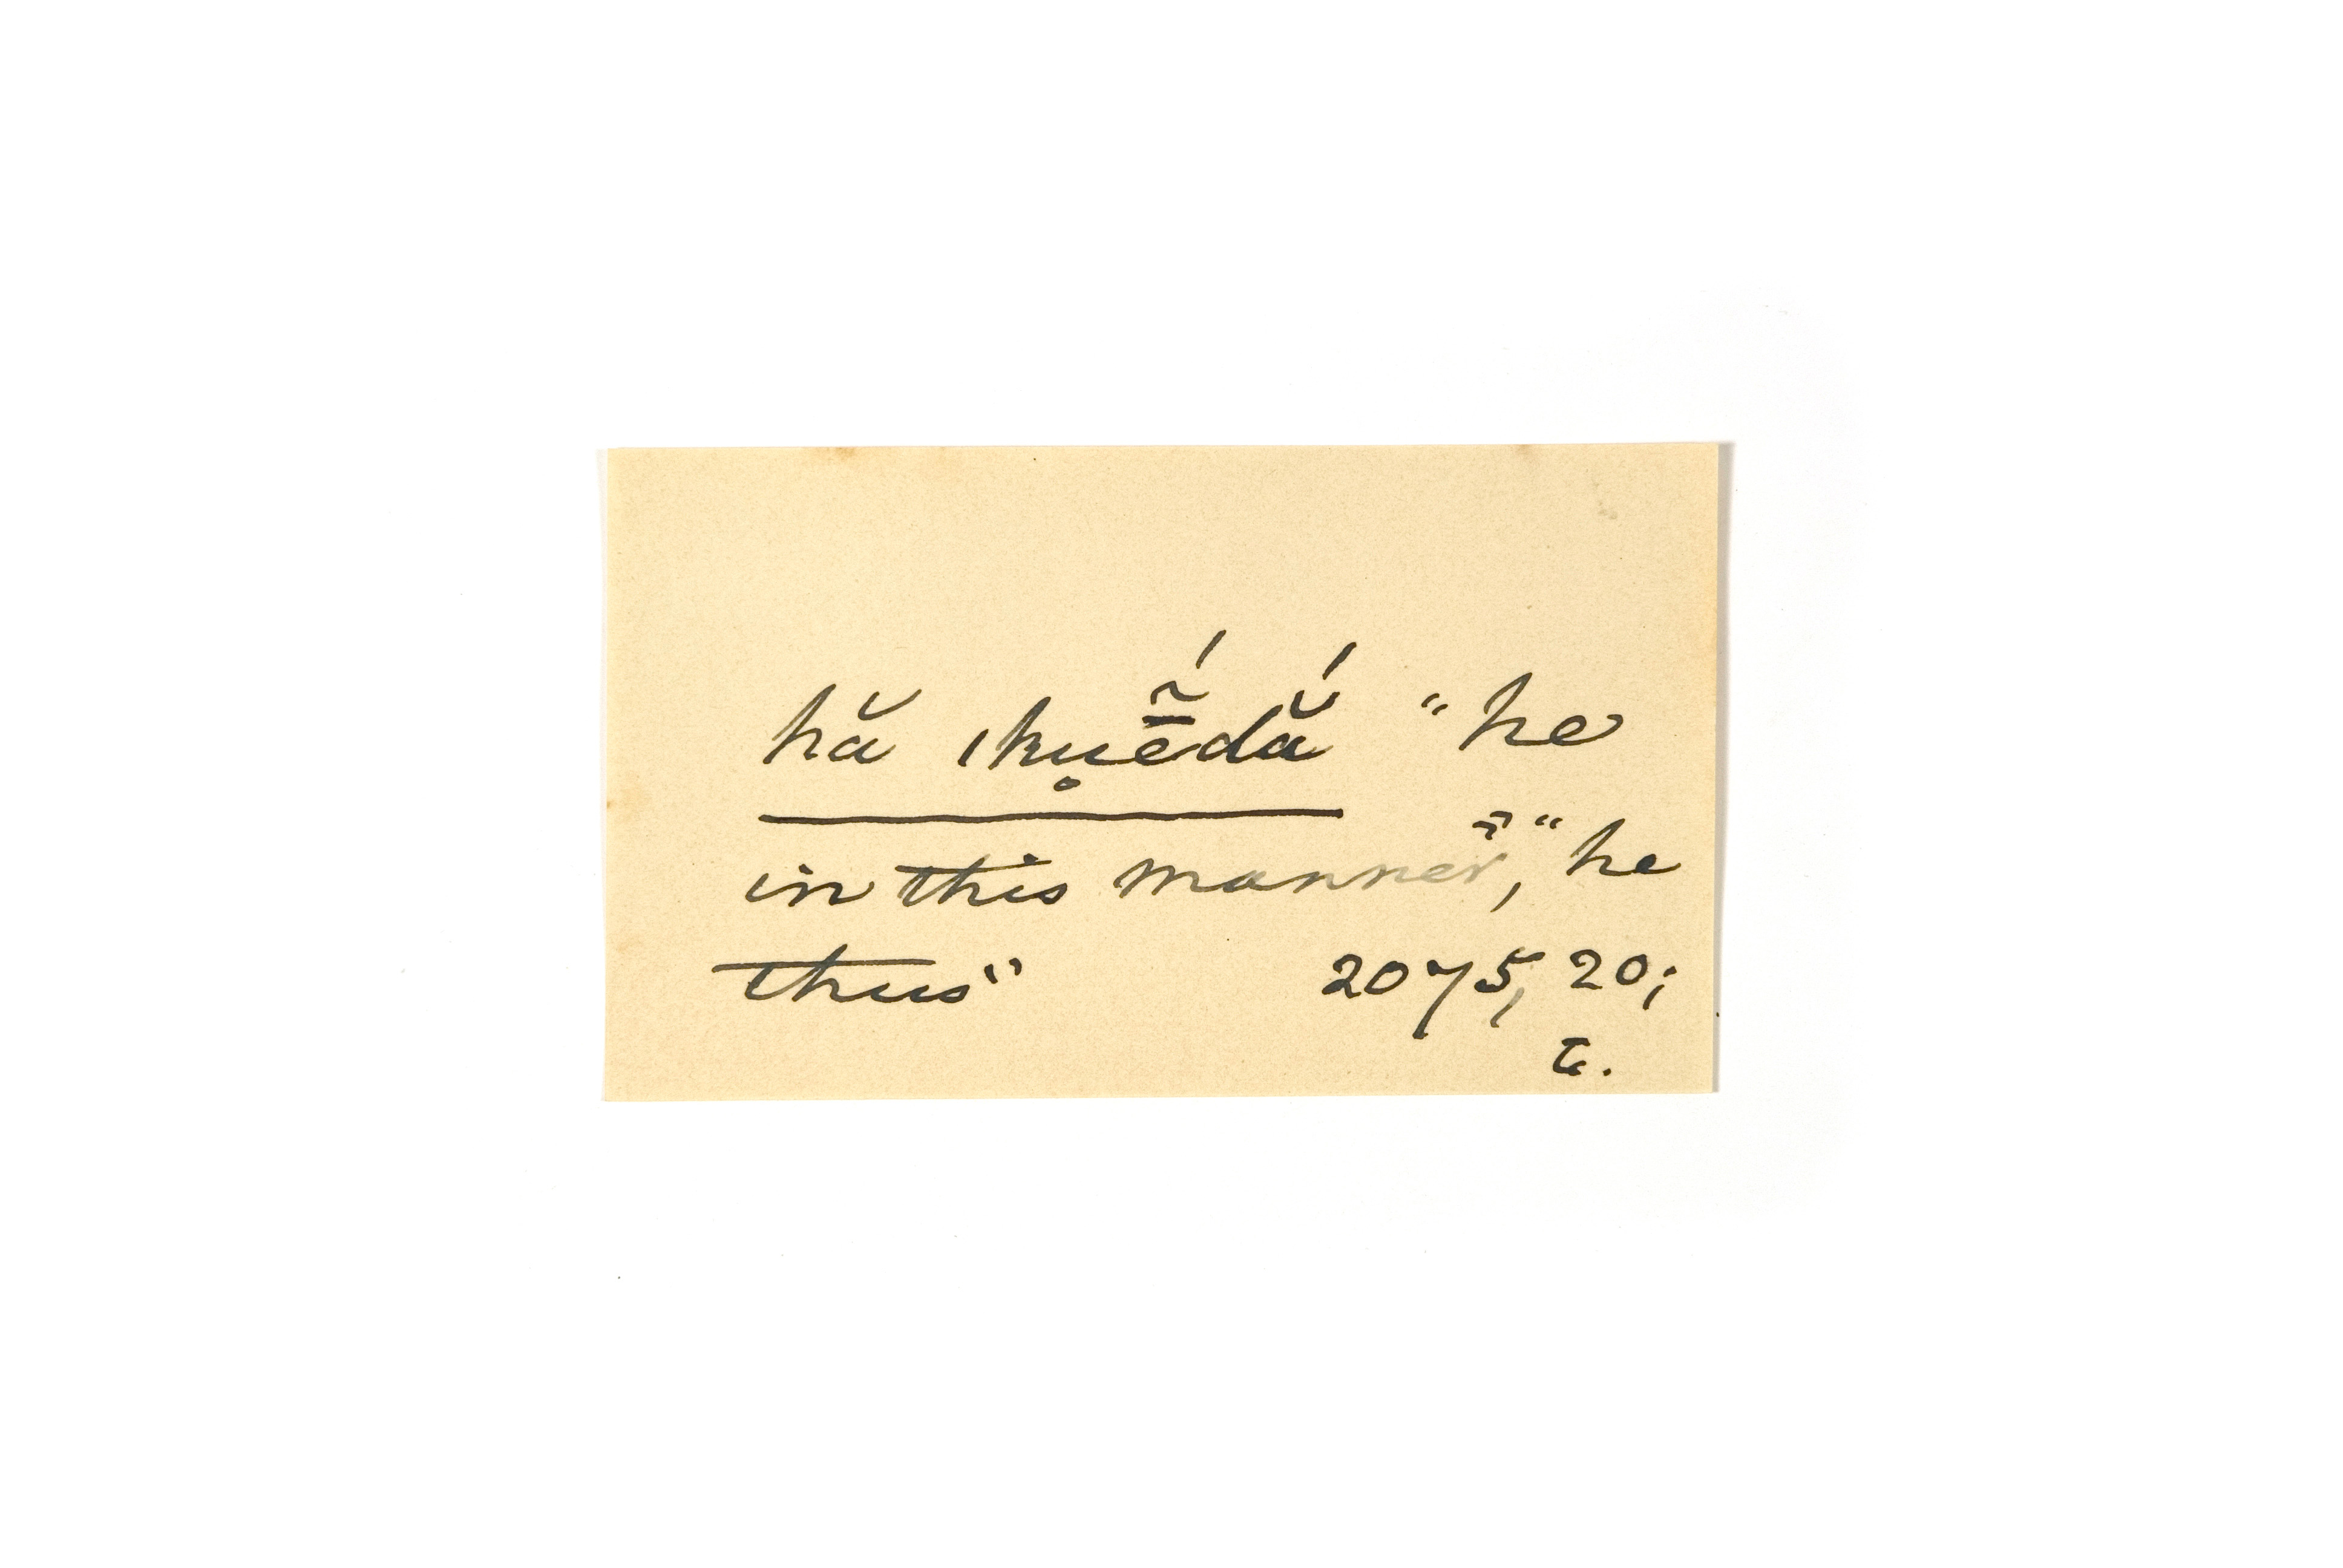 hă ıku̥ē̃́dắ "he
in this manner," "he
thus" 2075, 20;